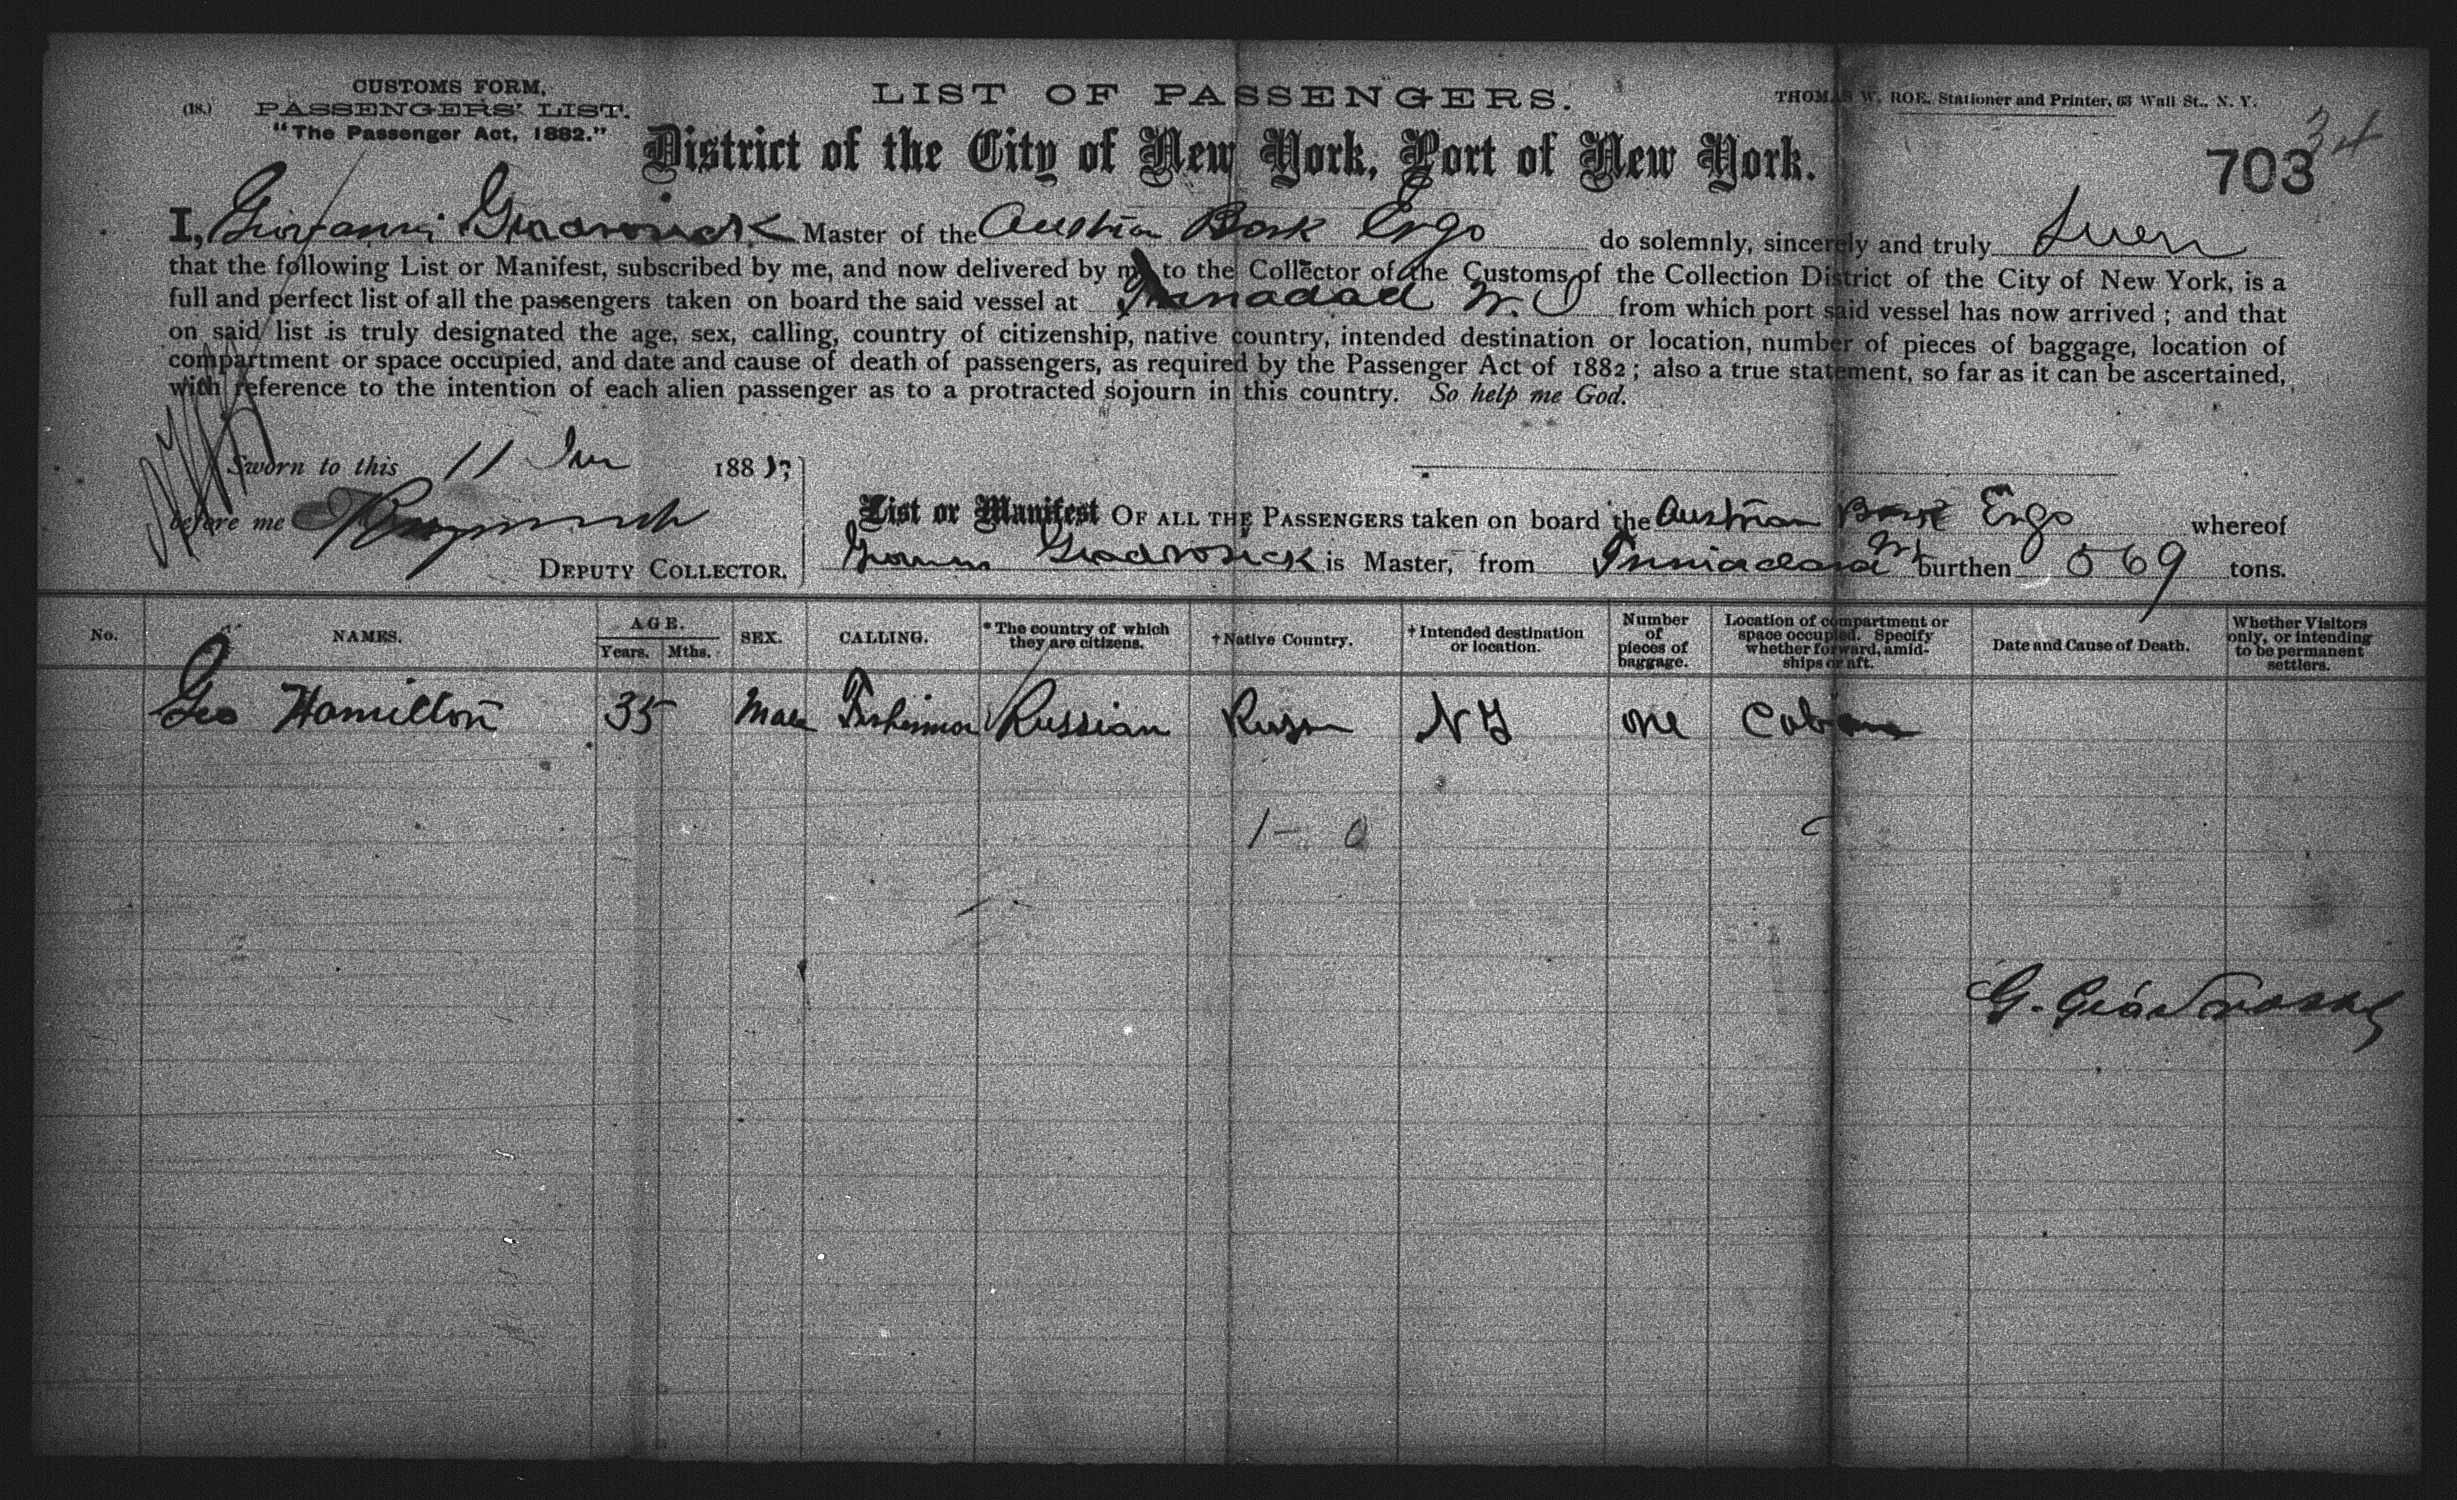 CUSTOMS FORM,
(18.) PASSENGERS' LIST.
"The Passenger Act, 1882."
LIST OF PASSENGERS.
THOMAS W. ROE, Stationer and Printer, 63 Wall St., N. Y.
34
District of the City of New York, Port of New York.
703
I, Giovanni Master of the Austrian Bark Ergo do solemnly, sincerely and truly Swear
that the following List or Manifest, subscribed by me, and now delivered by me to the Collector of the Customs of the Collection District of the City of New York, is a
full and perfect list of all the passengers taken on board the said vessel at Trinadad W. I from which port said vessel has now arrived; and that
on said list is truly designated the age, sex, calling, country of citizenship, native country, intended destination or location, number of pieces of baggage, location of
compartment or space occupied, and date and cause of death of passengers, as required by the Passenger Act of 1882; also a true statement, so far as it can be ascertained,
with reference to the intention of each alien passenger as to a protracted sojourn in this country. So help me God.
Sworn to this 11 188
before me
DEPUTY COLLECTOR.
List or Manifest OF ALL THE PASSENGERS taken on board the Austrian Bark Ergo whereof
is Master, from burthen 569 tons.
No. NAMES. AGE. Years. Mths. SEX. CALLING. *The country of which they are citizens. †Native Country. †Intended destination or location. Number of pieces of baggage. Location of compartment or space occupied. Specify whether forward, amidships or aft. Date and Cause of Death. Whether Visitors only, or intending to be permanent settlers.
Geo Hamilton 35 Male Fisherman Russian Russia NY one Cabin
1 - 0